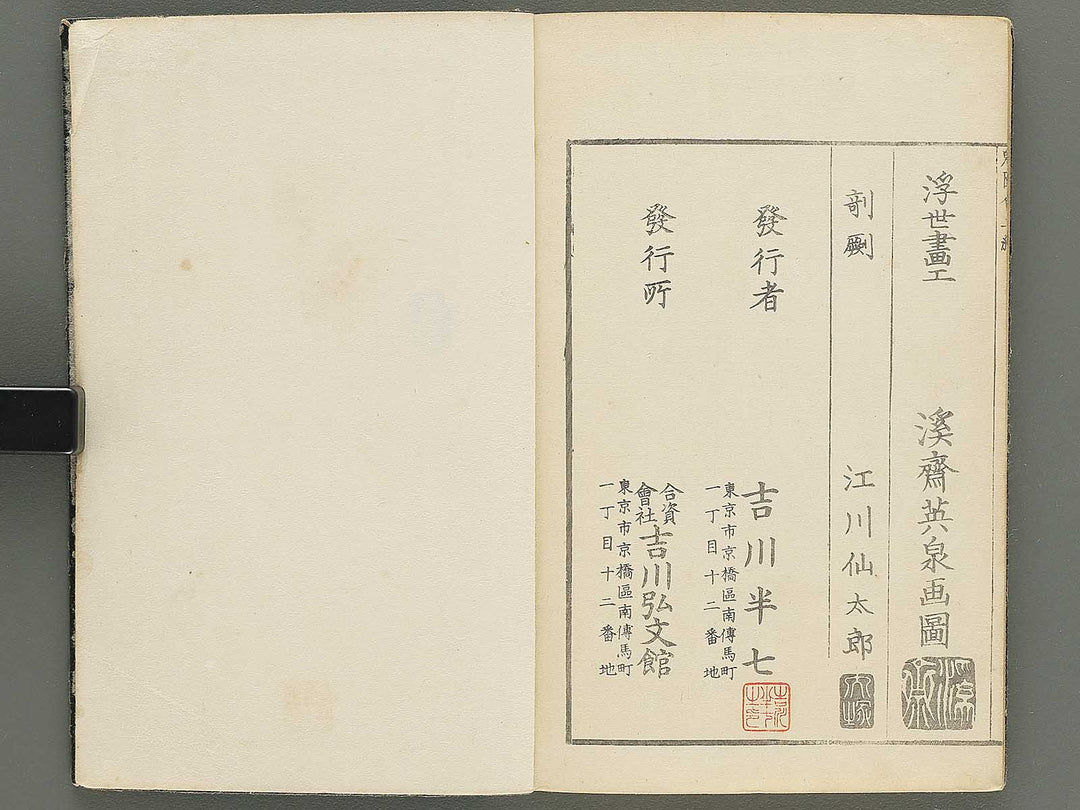 浮世畫工
溪齋英泉画圖
剞劂
江川仙太郎
發行者
東京市京橋區南傳馬町
一丁目十二番地
吉川半七
發行所
東京市京橋區南傳馬町
一丁目十二番地
合資會社
吉川弘文館